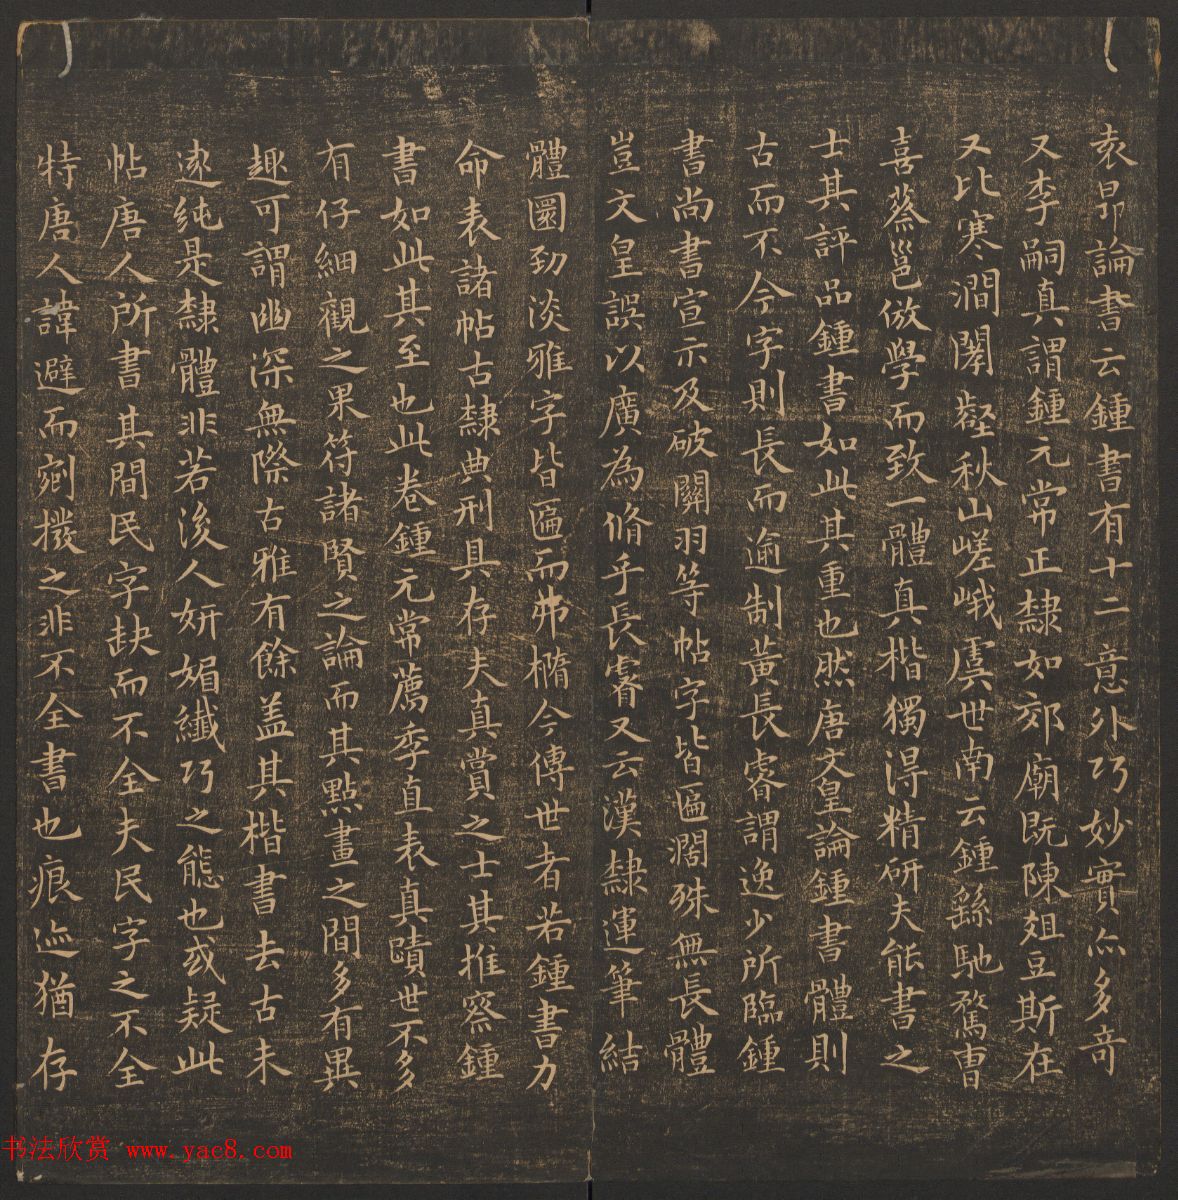 袁昂論書云鍾書有十二意外巧妙實亦多奇
又李嗣真謂鍾元常正隸如郊廟既陳俎豆斯在
又比寒澗闃壑秋山嵯峨虞世南云鍾繇馳騖曹
喜蔡邕倣學而致一體真楷獨得精研夫能書之
士其評品鍾書如此其重也然唐文皇論鍾書體則
古而不今字則長而逾制黃長睿謂逸少所臨鍾
書尚書宣示及破關羽等帖字皆匾濶殊無長體
豈文皇誤以廣為脩乎長睿又云漢隸運筆結
體圜勁淡雅字皆匾而弗橢今傳世者若鍾書力
命表諸帖古隸典刑具存夫真賞之士其推察鍾
書如此其至也此卷鍾元常薦季直表真蹟世不多
有仔細觀之果符諸賢之論而其點畫之間多有異
趣可謂幽深無際古雅有餘盖其楷書去古未
遠純是隸體非若後人妍媚纖巧之態也或疑此
帖唐人所書其間民字缺而不全夫民字之不全
特唐人諱避而剜撥之非不全書也痕迹猶存
书法欣赏 www.yac8.com